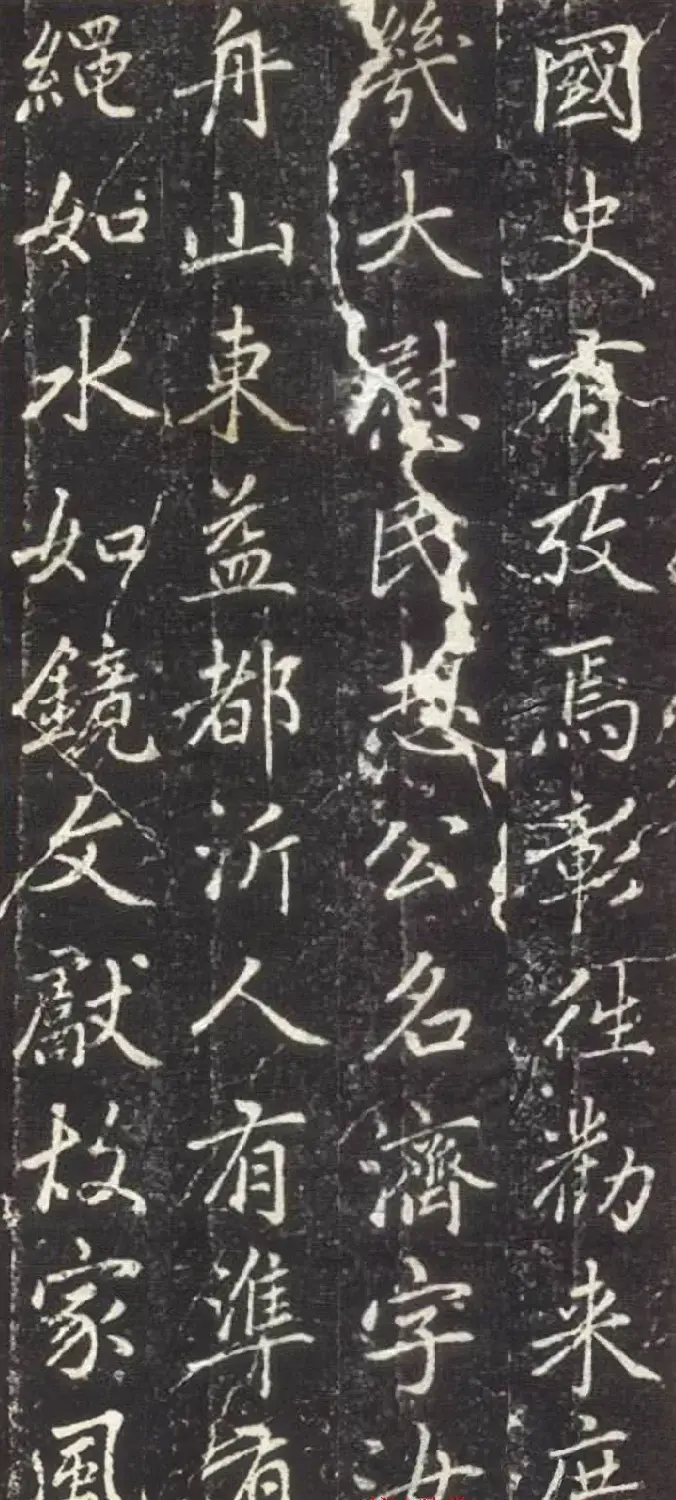 國史有攷焉彰徃勸来庶
幾大慰民想公名濟字汝
舟山東益都沂人有準有
繩如水如鏡文獻故家風